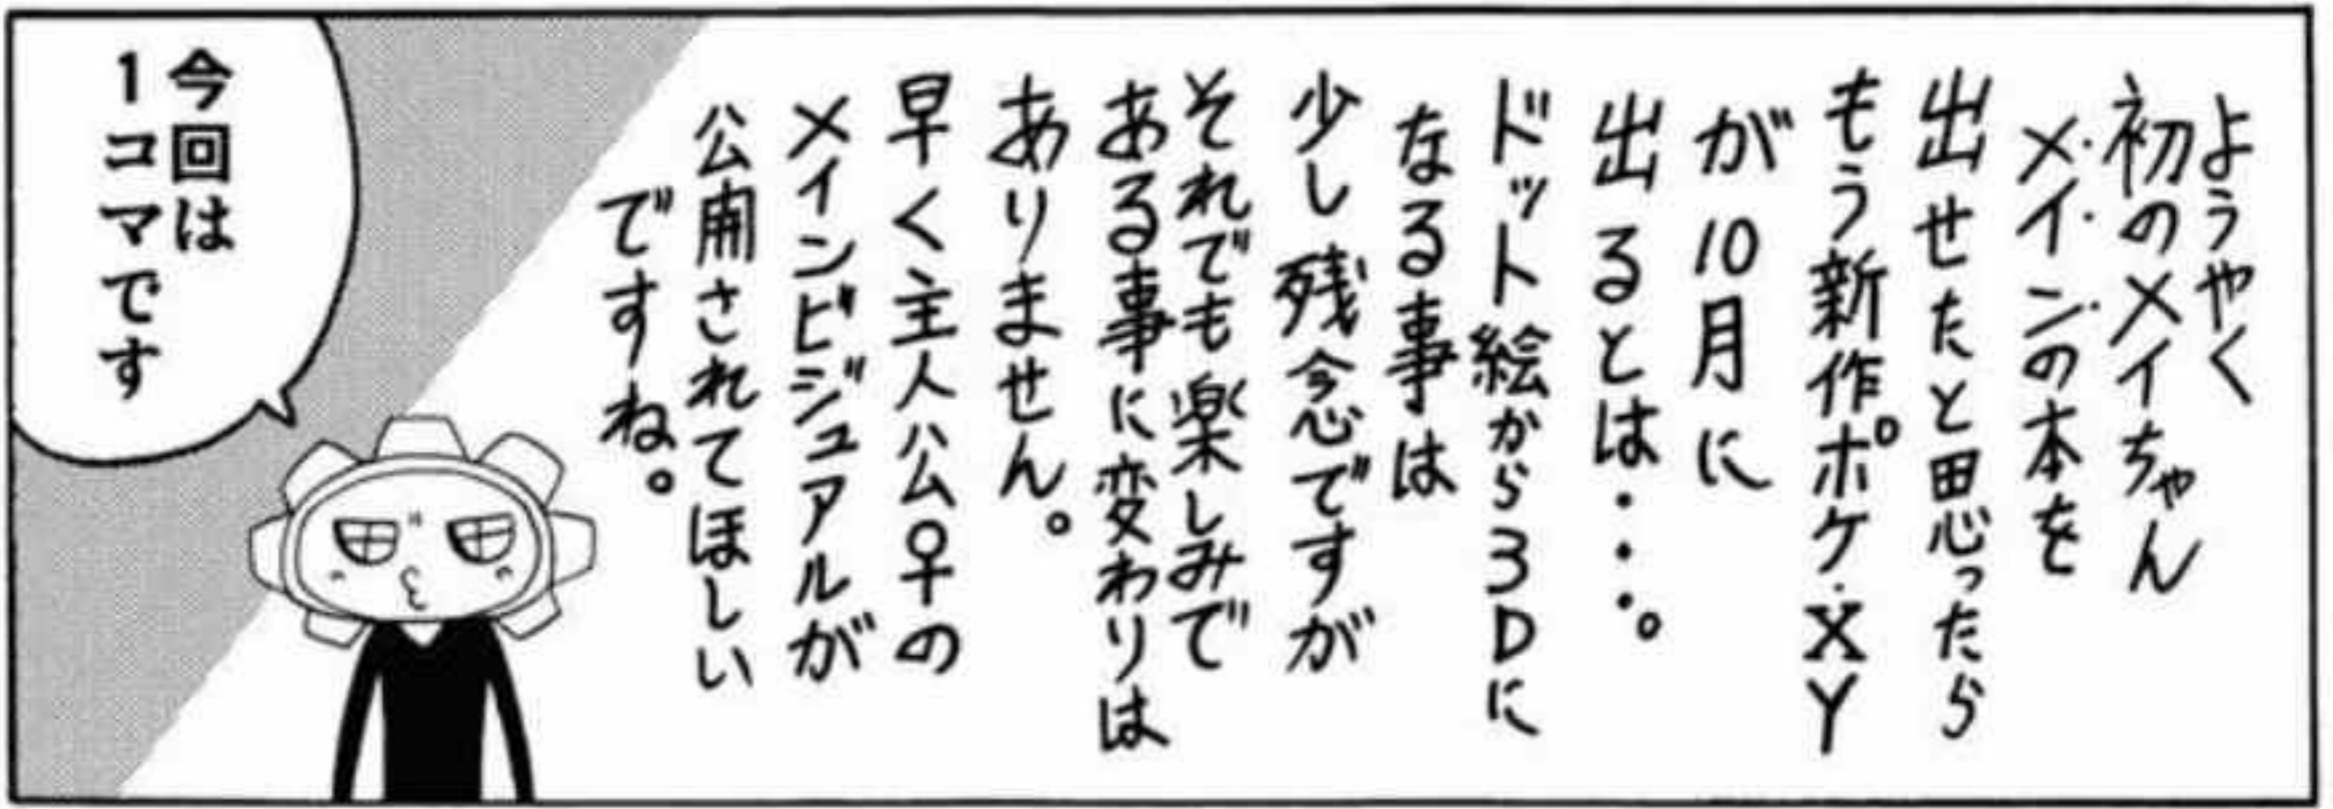 ようやく
初のメイちゃん
メインの本を
出せたと思ったら
もう新作ポケ.XY
が10月に
出るとは・・・。
ドット絵から3Dに
なる事は
少し残念ですが
それでも楽しみで
ある事に変わりは
ありません。
早く主人公♀の
メインビジュアルが
公開されてほしい
ですね。
今回は
1コマです